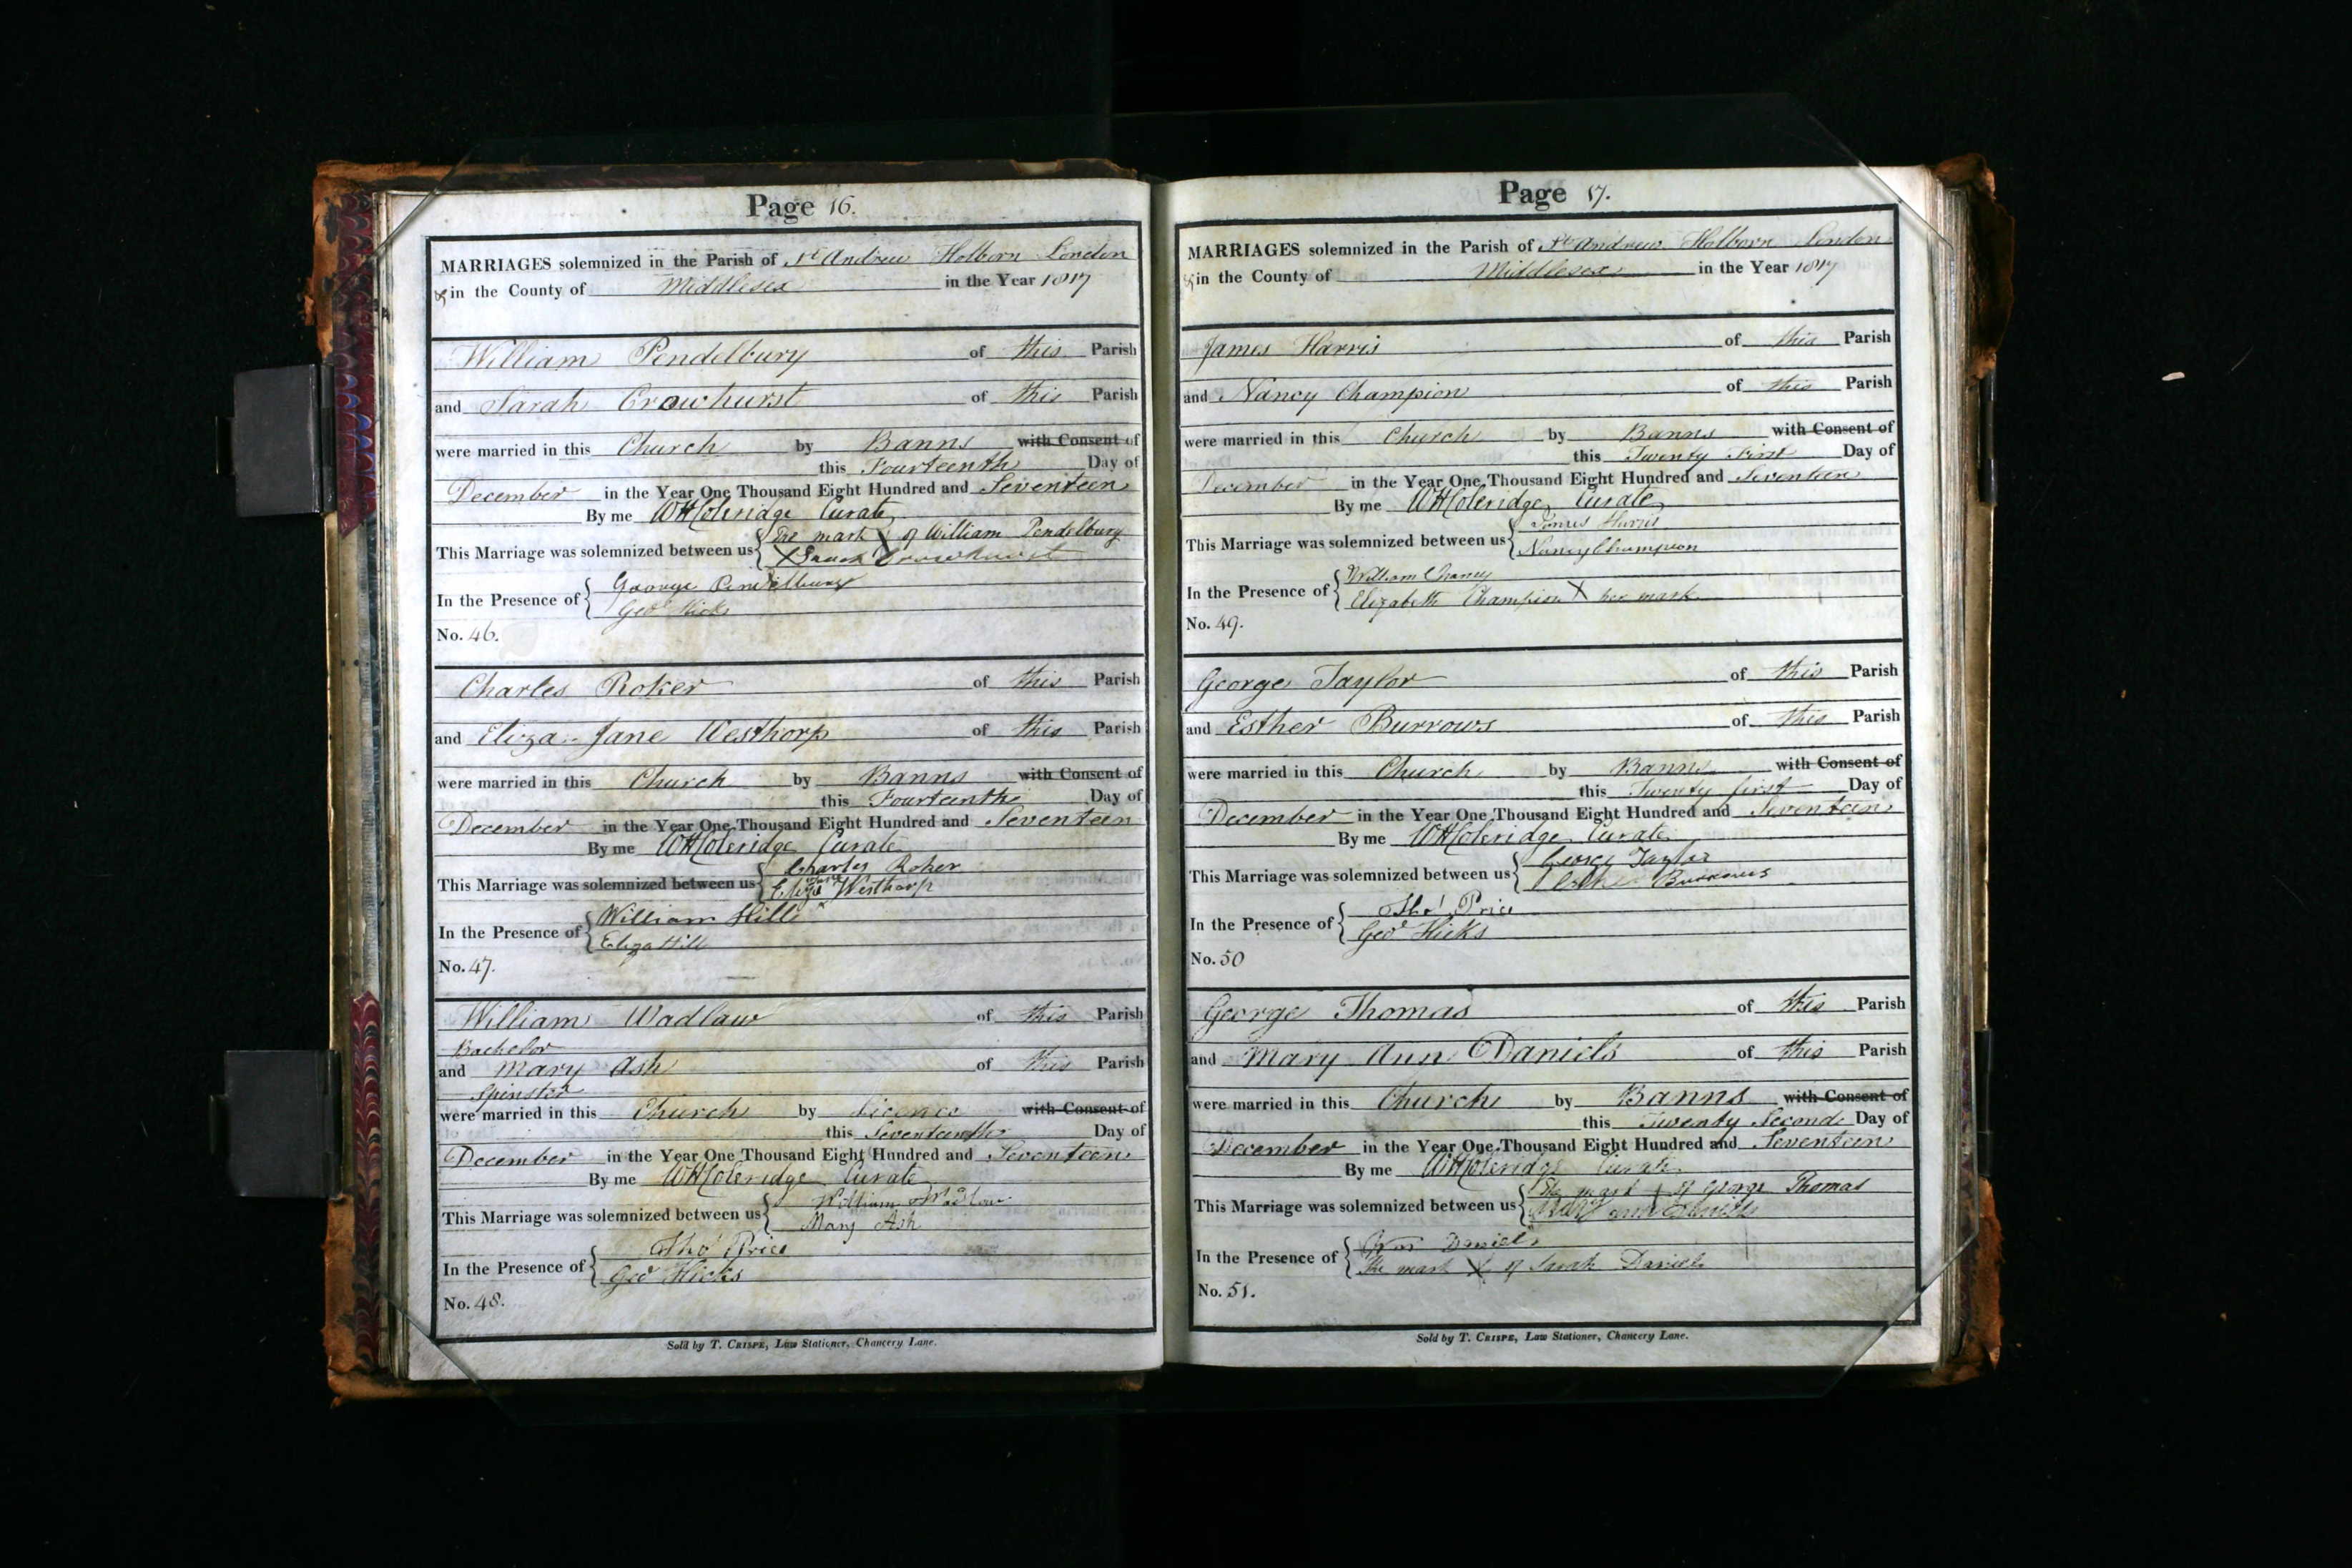 Page 16.
MARRIAGES solemnized in the Parish of St Andrew Holborn London
& in the County of Middlesex in the Year 1817
William Pendelbury of this Parish
and Sarah Crowhurst of this Parish
were married in this Church by Banns with Consent of
this Fourteenth Day of
December in the Year One Thousand Eight Hundred and Seventeen
By me WHColeridge Curate
This Marriage was solemnized between us { The mark X of William Pendelbury
X Sarah Crowhurst
In the Presence of { George Pendelbury
Geoe Hicks
No. 46.
Charles Roker of this Parish
and Eliza Jane Westhorp of this Parish
were married in this Church by Banns with Consent of
this Fourteenth Day of
December in the Year One Thousand Eight Hundred and Seventeen
By me WHColeridge Curate
This Marriage was solemnized between us { Charles Roker
Eliza Jane Westhorp
In the Presence of { William Hill
Eliza Hill
No. 47.
William Wadlaw of this Parish
Bachelor
and Mary Ash of this Parish
Spinster
were married in this Church by Licence with Consent of
this Seventeenth Day of
December in the Year One Thousand Eight Hundred and Seventeen
By me WHColeridge Curate
This Marriage was solemnized between us { William Wadlow
Mary Ash
In the Presence of { Thos Price
Geoe Hicks
No. 48.
Sold by T. CRISPE, Law Stationer, Chancery Lane.
Page 17.
MARRIAGES solemnized in the Parish of St Andrew Holborn London
& in the County of Middlesex in the Year 1817
James Harris of this Parish
and Nancy Champion of this Parish
were married in this Church by Banns with Consent of
this Twenty First Day of
December in the Year One Thousand Eight Hundred and Seventeen
By me WHColeridge Curate
This Marriage was solemnized between us { James Harris
Nancy Champion
In the Presence of { William Chaney
Elizabeth Champion X her mark
No. 49.
George Taylor of this Parish
and Esther Burrows of this Parish
were married in this Church by Banns with Consent of
this Twenty first Day of
December in the Year One Thousand Eight Hundred and Seventeen
By me WHColeridge Curate
This Marriage was solemnized between us { George Taylor
Burrows
In the Presence of { Thos Price
Geoe Hicks
No. 50
George Thomas of this Parish
and Mary Ann Daniels of this Parish
were married in this Church by Banns with Consent of
this Twenty Second Day of
December in the Year One Thousand Eight Hundred and Seventeen
By me WHColeridge Curate
This Marriage was solemnized between us { The mark X of George Thomas
Mary ann Daniels
In the Presence of { Daniels
The mark X of Sarah Daniels
No. 51.
Sold by T. CRISPE, Law Stationer, Chancery Lane.